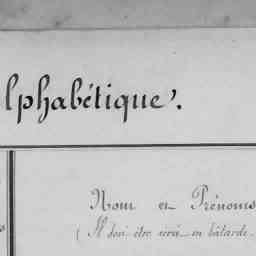 lphabétique.
Nom et Prénoms
(Il doit être écrit en bâtarde.